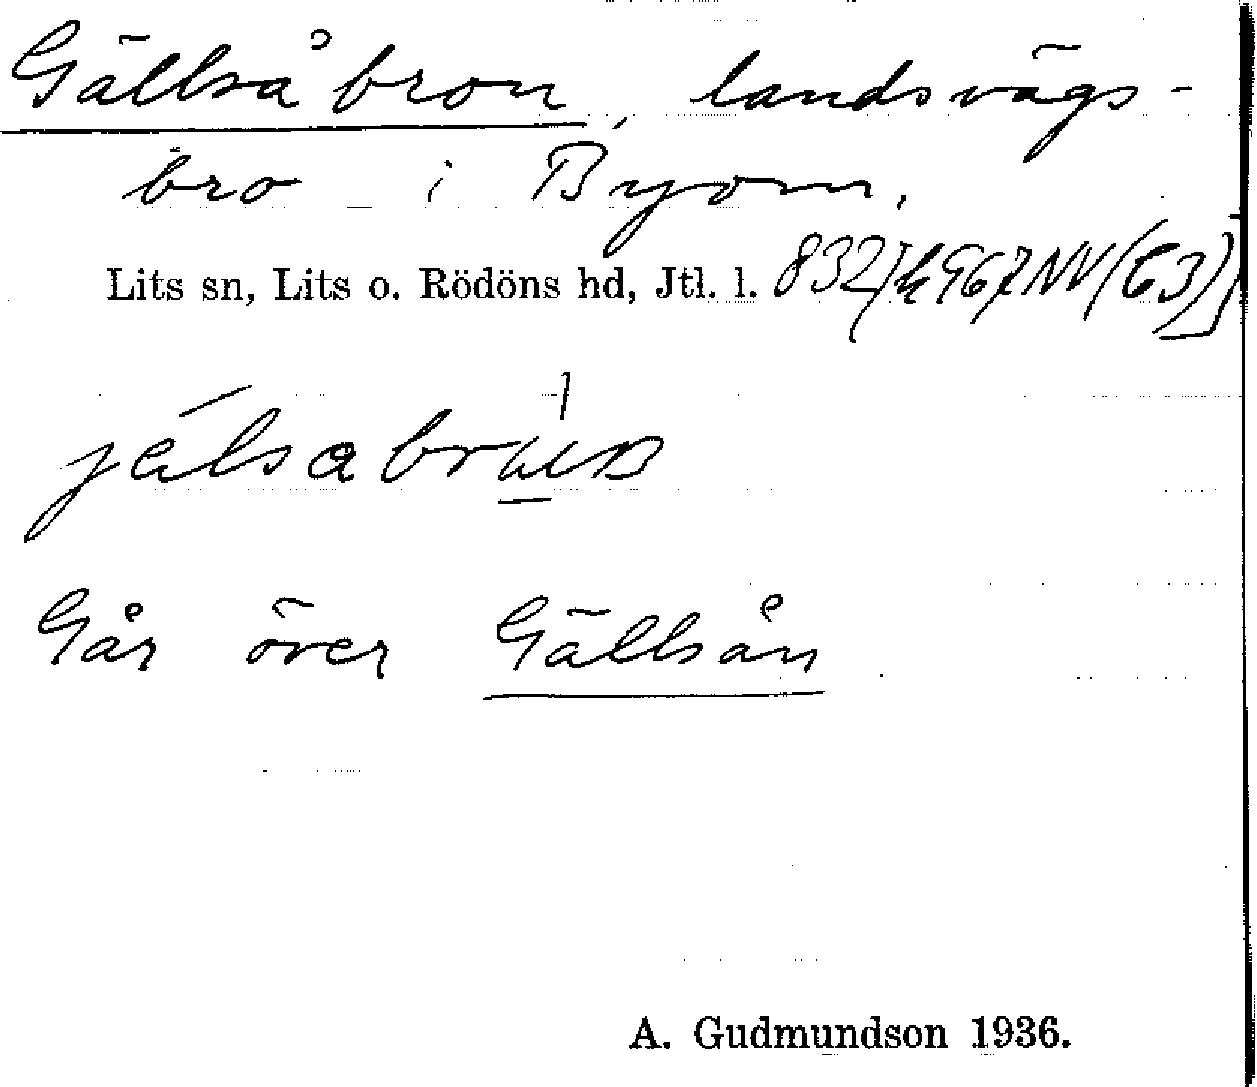 Gällsåbron, landsvägs-
bro i Byom.
Lits sn, Lits o. Rödöns hd, Jtl. l.
Går över Gällsån
A. Gudmundson 1936.